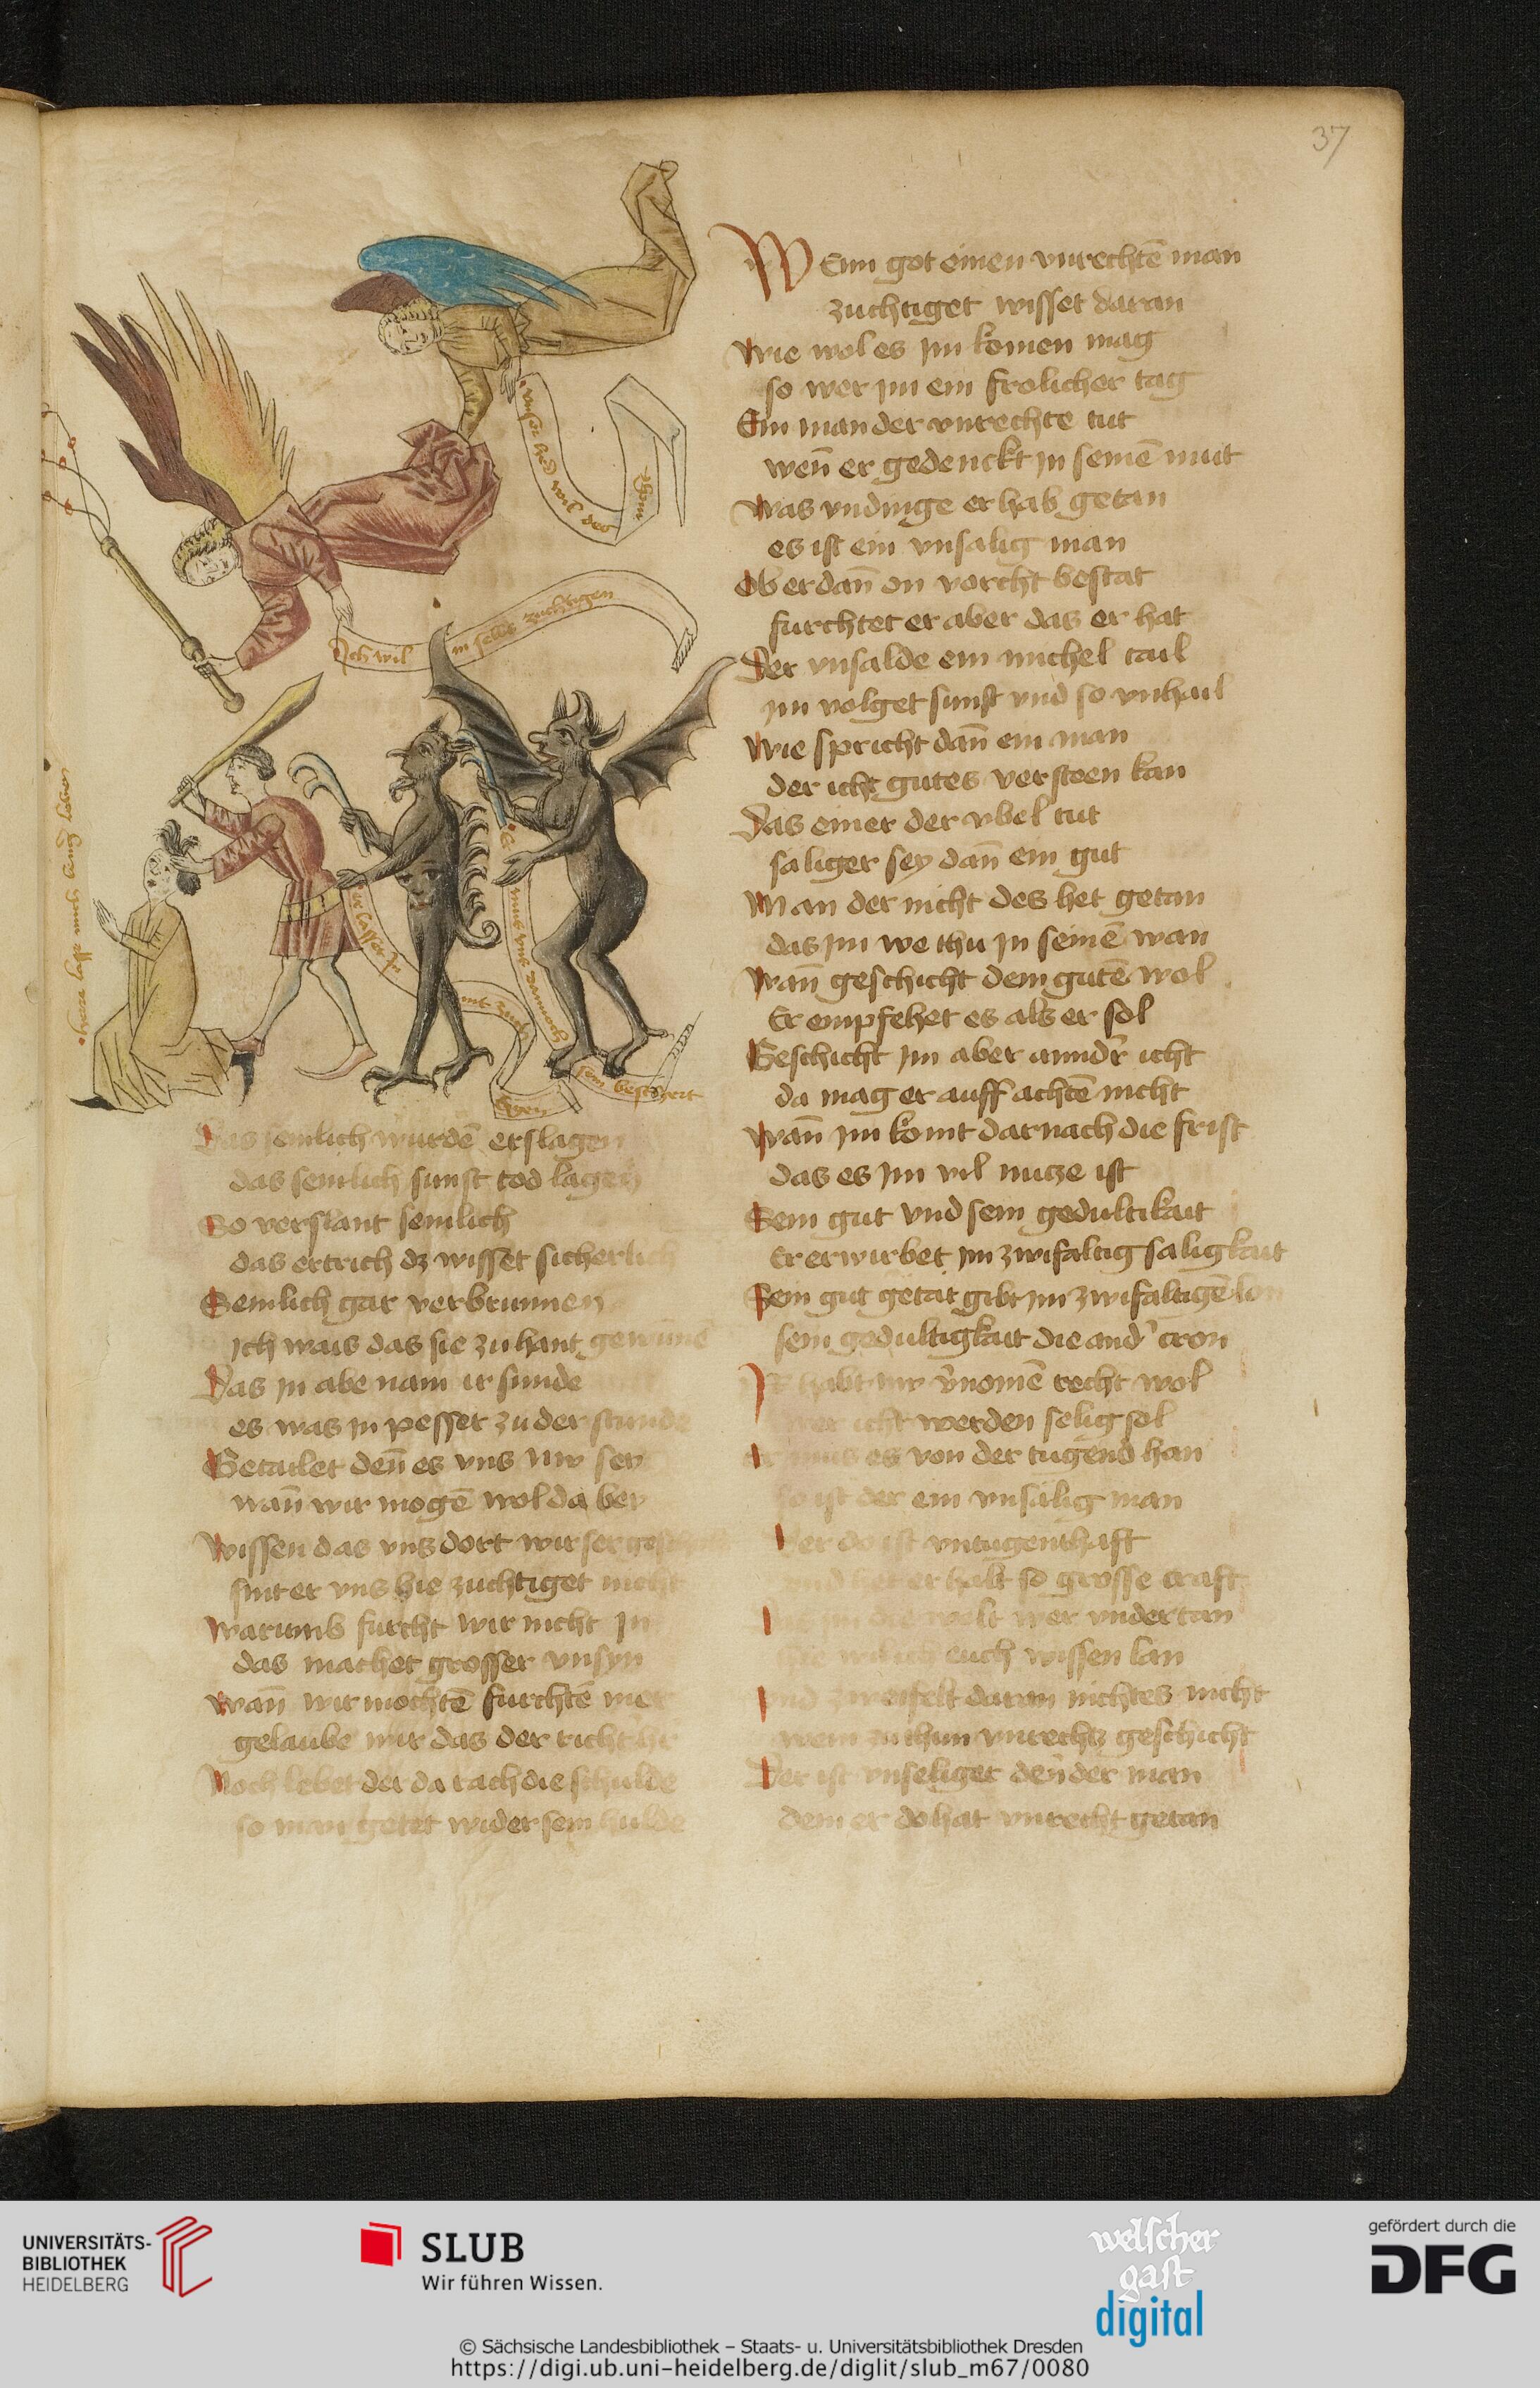 37
vnser hed wil des
Ich wil in selbs zuchtigen
herre lasse mich lang leben
sein beschert
Das semlich wurdē erslagen
das semlich sunst tod lagen
So verslant semlich
das ertrich dz wisset sicherlich
Semlich gar verbrunnen
ich wais das sie zu hant gewūne
Das in abe nam ir sunde
es was in pesser zu der stunde
Betailet den̄ es vns nw sey
wan̄ wir mogē wol da bey
Wissen das vns dort wirser
sint er vns hie zuchtiget nicht
Warumb furcht wir nicht In
das machet grosser vnsyn
Wan̄ wir mochtē furchtē mer
gelaube mir das der richter
Noch lebet der da rach die schulde
so man getet wider sein hulde
WEnn got einen vnrechtē man
zuchtiget wisset daran
Wie wol es im komen mag
so wer im ein frolicher tag
Ein man der vnrechte tut
wen̄ er gedenckt in seinē mut
Was vndinge er hab getan
es ist ein vnsalig man
Ob er dan̄ on vorcht bestat
furchtet er aber das er hat
Der vnsalde ein michel tail
im volget sunst vnd so vnhail
Wie spricht dan̄ ein man
der icht gutes versteen kan
Das einer der vbel tut
saliger sey dan̄ ein gut
Man der nicht des het getan
das im we thu in seinē wan
Wan̄ geschicht dem gutē wol
Er empfehet es als er sol
Geschicht im aber annd'r icht
da mag er auff achtē nicht
Wan̄ im komt darnach die frist
das es im vil nutze ist
Sein gut vnd sein gedultikait
Er erwirbet im zwifaltig saligkait
Sein gut getat gibt im zwifaltigē lon
sein gedultigkait die and' cron
IR habt nw v'nomē recht wol
wer icht werden selig sol
er mus es von der tugend han
so ist der ein vnsalig man
Der do ist vntugenthaft
vnd het er halt so grosse craft
welt wer vndertan
euch wissen lan
vnd zweifelt daran nichtes nicht
wem zu thun vnrechtz geschicht
Der ist vnseliger den̄ der man
dem er do hat vnrecht getan
UNIVERSITÄTS-
BIBLIOTHEK
HEIDELBERG
SLUB
Wir führen Wissen.
welscher
gast
digital
gefördert durch die
DFG
© Sächsische Landesbibliothek – Staats- u. Universitätsbibliothek Dresden
https://digi.ub.uni-heidelberg.de/diglit/slub_m67/0080